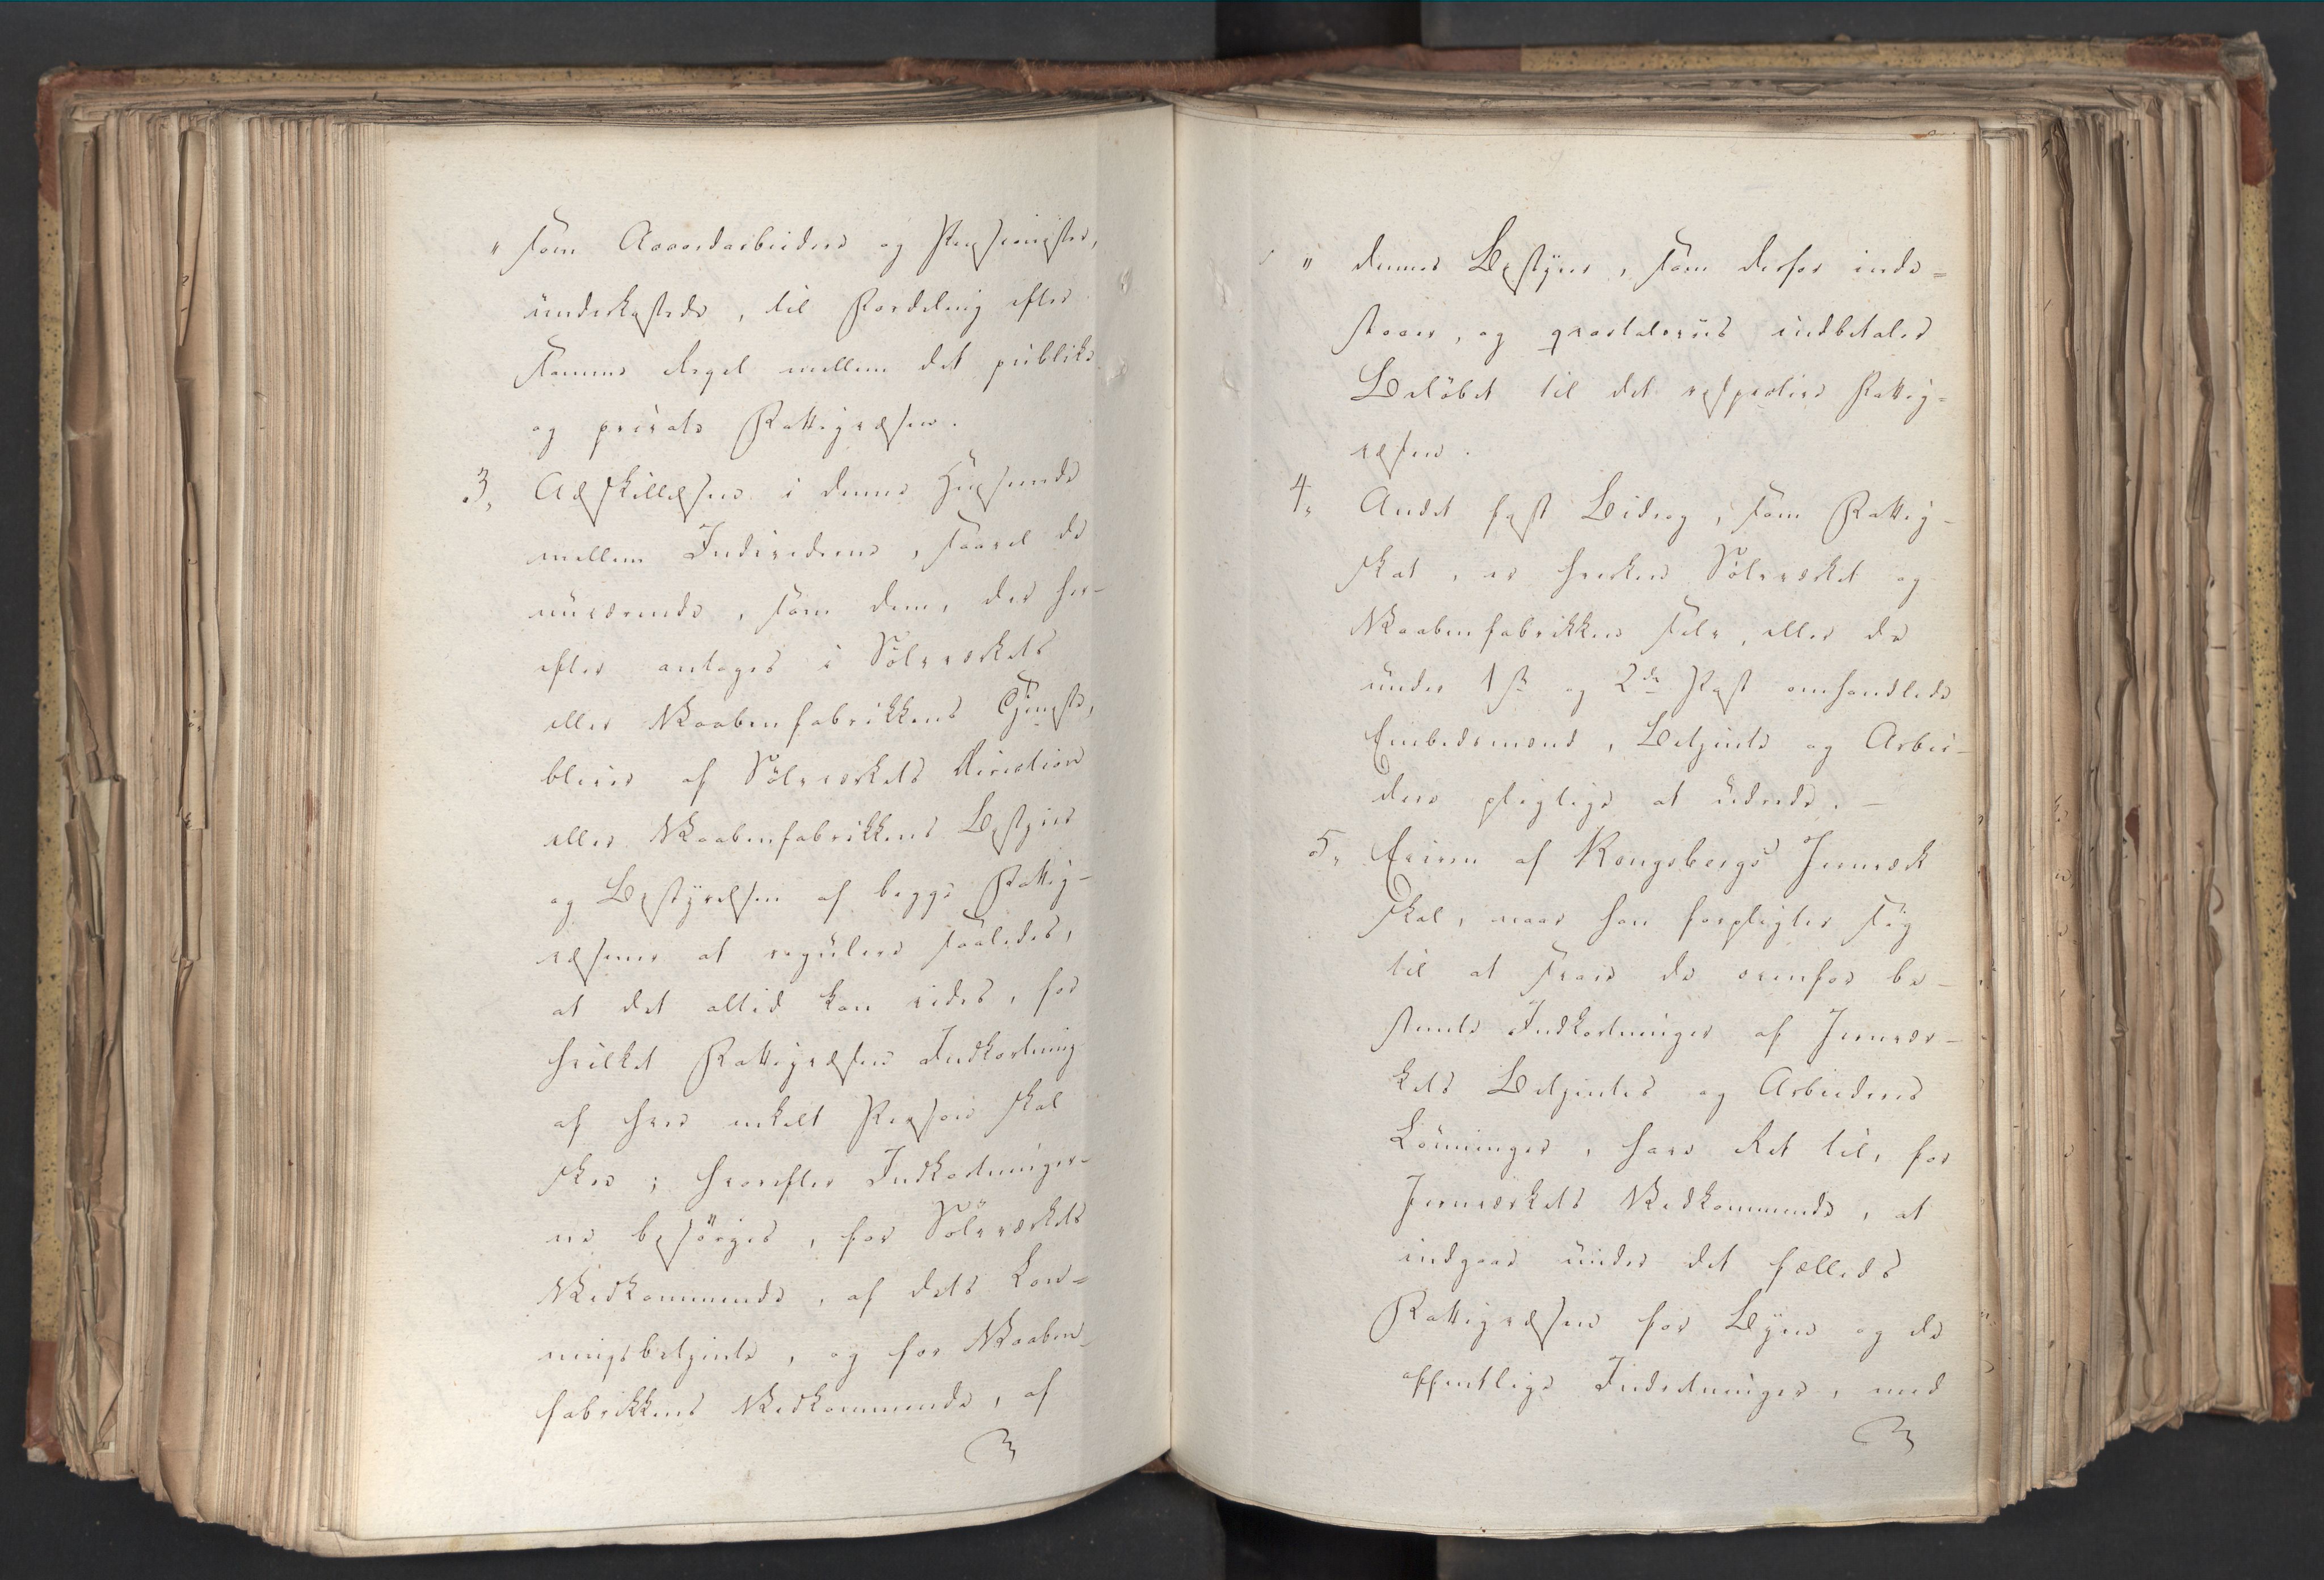 " som Accordarbeidere og Pensionister,
underkastede, til Fordeling efter
samme Regel mellem det publike
og private Fattigvæsen.
3, Adskillelsen i denne Henseende
mellem Individerne, saavel de
nuværende, som dem, der her-
efter antages i Sölvværkets
eller Vaabenfabrikkens Tjeneste,
bliver af Sölvværkets Direction
eller Vaabenfabrikkens Bestyrer
og Bestyrelsen af begge Fattig-
væsener at regulere saaledes,
at det altid kan vides, for
hvilket Fattigvæsen Indkortning
af hver enkelt Person skal
skee; hvorefter Indkortninger-
ne besörges, for Sölvværkets
Vedkommende, af dets Lön-
ningsbetjente, og for Vaaben-
fabrikkens Vedkommende, af
" dennes Bestyrer, som derfor inde-
staaer, og qvartaliter indbetaler
Belöbet til det respective Fattig-
væsen.
4, Andet fast Bidrag, som Fattig-
skat, er hverken Sölvværket og
Vaabenfabrikken selv, eller de
under 1ste og 2den Post omhandlede
Embedsmænd, Betjente og Arbei-
dere pligtige at udrede. -
5, Eieren af Kongsbergs Jernværk
skal, naar han forpligter sig
til at svare de ovenfor be-
stemte Indkortninger af Jernvær-
kets Betjentes og Arbeideres
Lönninger, have Ret til, for
Jernværkets Vedkommende, at
indgaae under det fælleds
Fattigvæsen for Byen og de
offentlige Indretninger, med